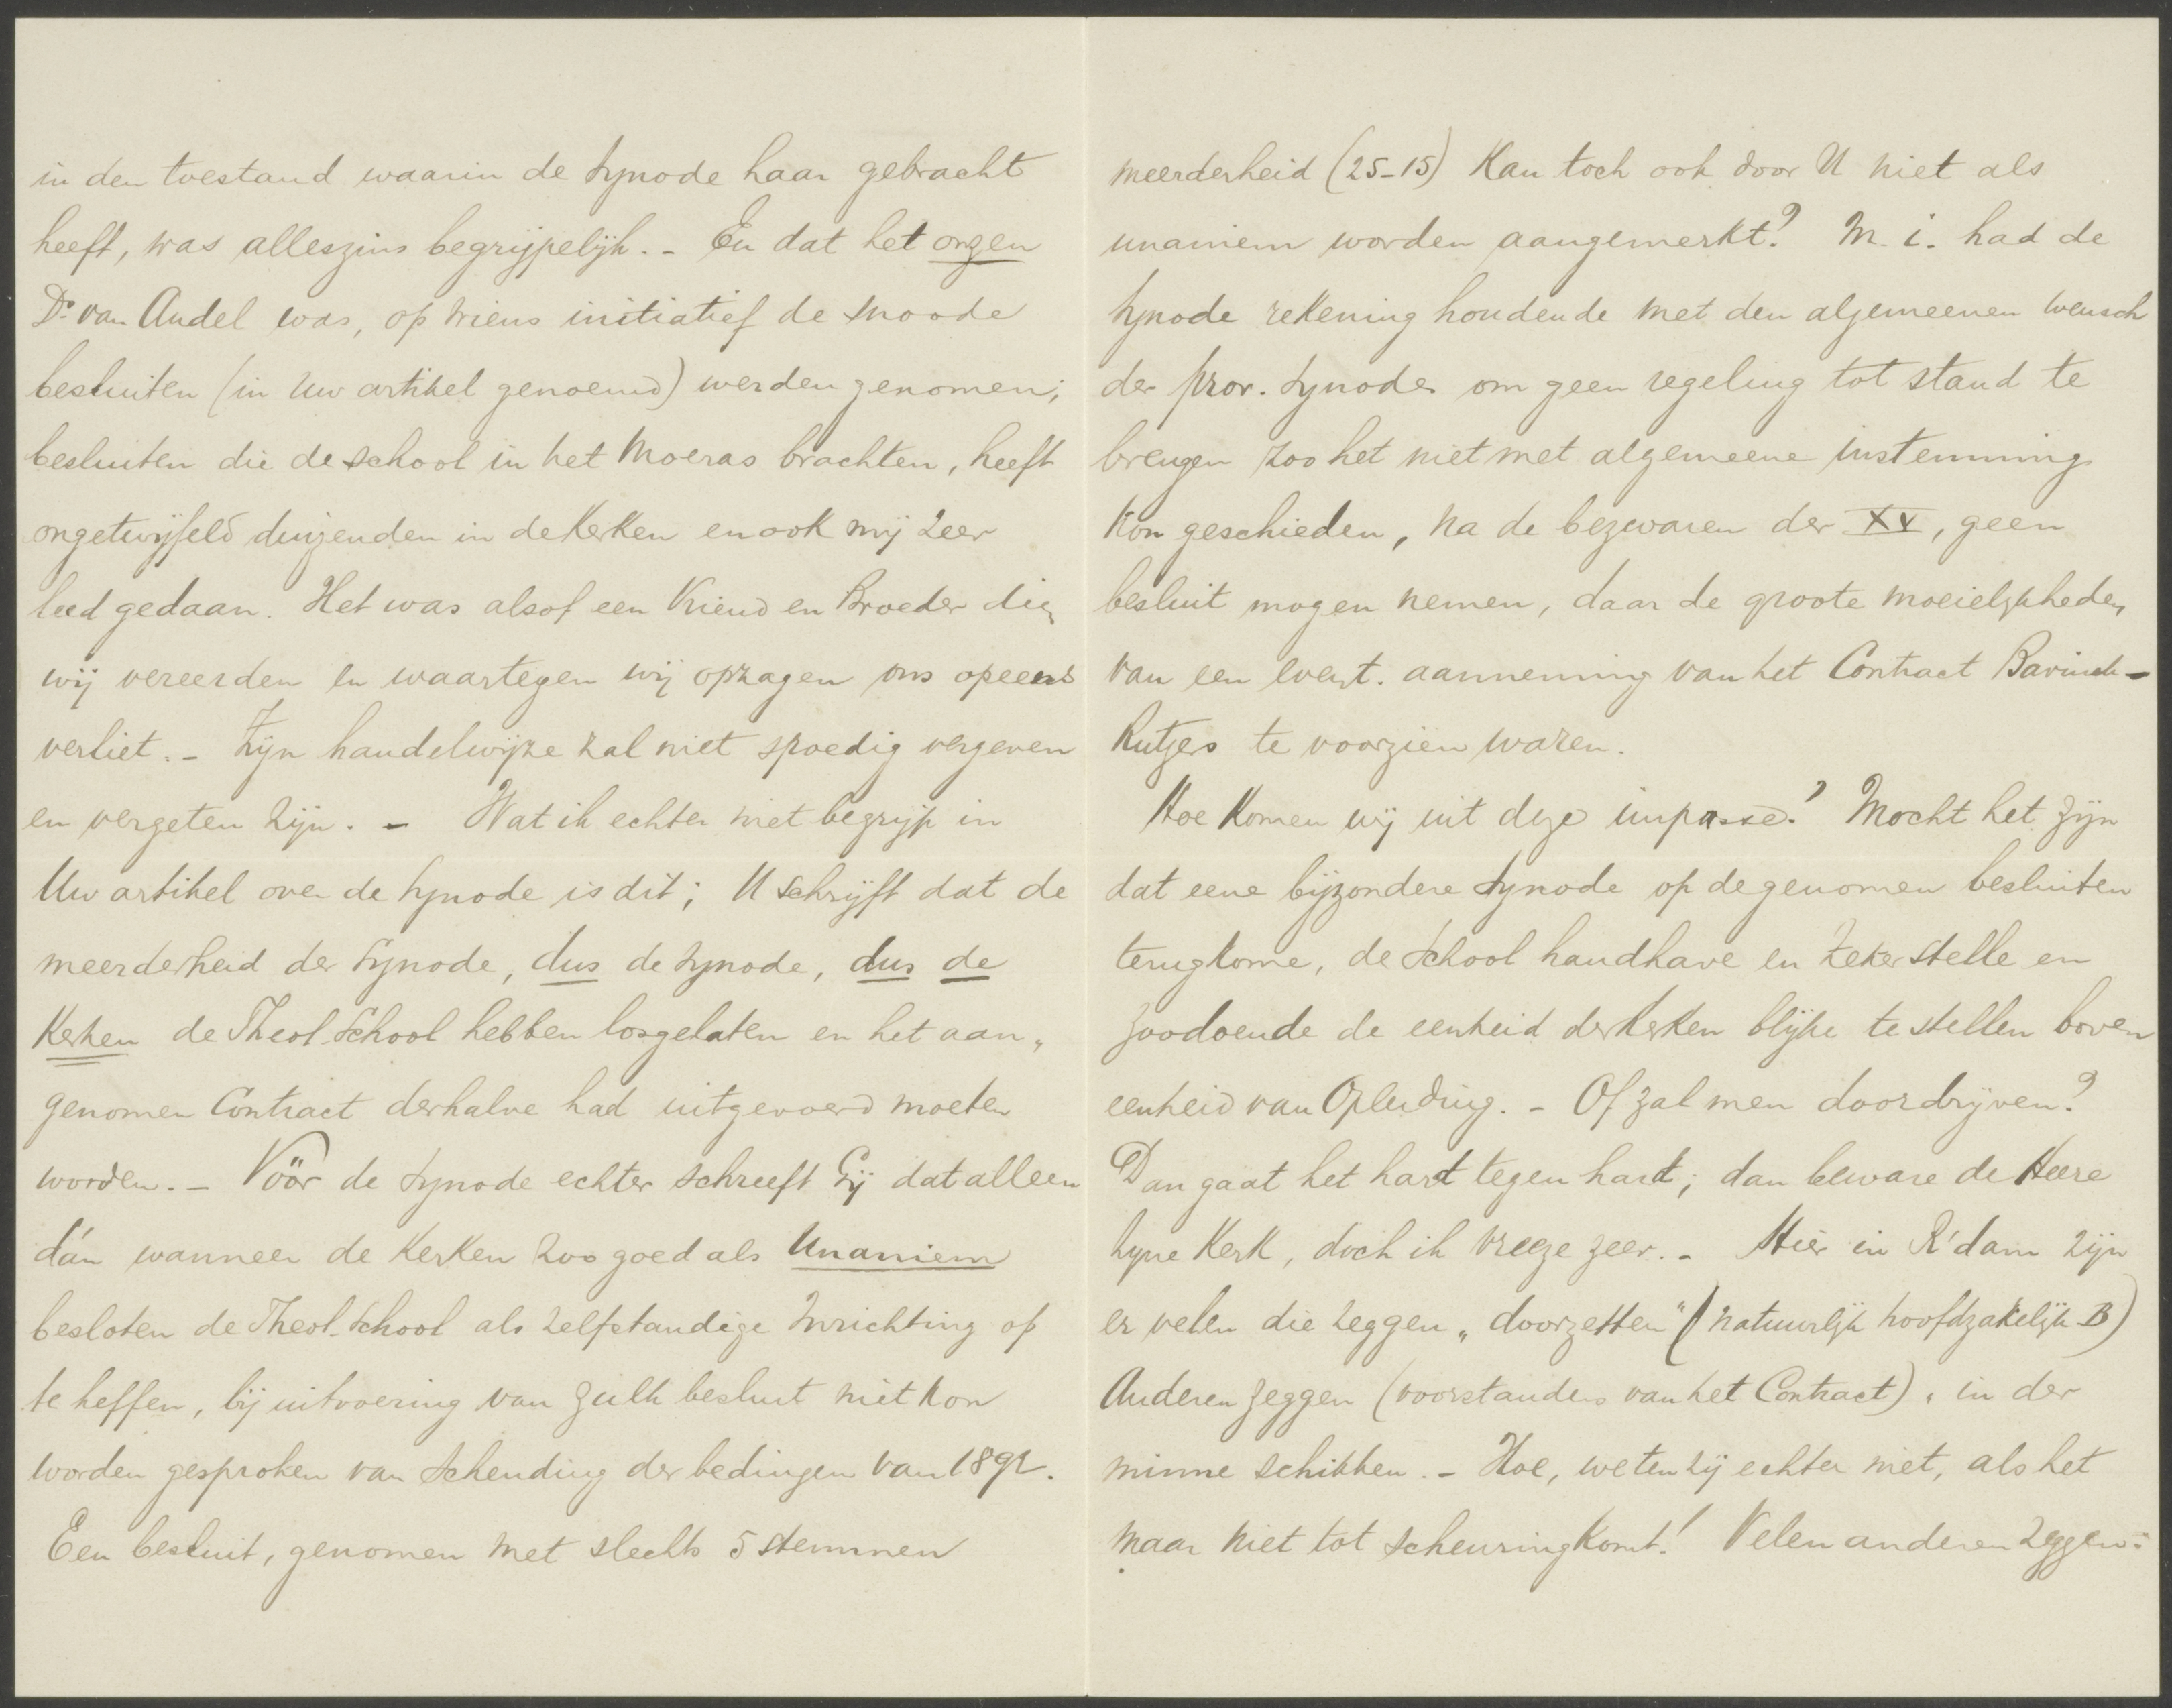 in den toestand waarin de Synode haar gebracht
heeft, was alleszins begrijpelijk. - En dat het onzen
Ds. van Andel was, op wiens initiatief de snoode
besluiten (in Uw artikel genoemd) werden genomen;
besluiten die de school in het moeras brachten, heeft
ongetwijfeld duizenden in de Kerken en ook mij zeer
leed gedaan. Het was alsof een Vriend en Broeder dien
wij vereerden en waartegen wij opzagen ons opeens
verliet. - Zijn handelwijze zal niet spoedig vergeven
en vergeten zijn. - Wat ik echter niet begrijp in
Uw artikel over de Synode is dit; U schrijft dat de
meerderheid der Synode, dus de Synode, dus de
Kerken de Theol. School hebben losgelaten en het aan„
genomen Contract derhalve had uitgevoerd moeten
worden. - Vóór de Synode echter schreeft Gij dat alleen
dán wanneer de Kerken zoo goed als Unaniem
besloten de Theol. School als zelfstandige Inrichting op
te heffen, bij uitvoering van zulk besluit niet kon
worden gesproken van Schending der bedingen van 1892.
Een besluit, genomen met slechts 5 stemmen
meerderheid (25-15) Kan toch ook door U niet als
unaniem worden aangemerkt? M. i. had de
Synode rekening houdende met den algemeenen wensch
der prov. Synodes om geen regeling tot stand te
brengen zoo het niet met algemeene instemming
kon geschieden, na de bezwaren der XV, geen
besluit mogen nemen, daar de groote moeielijkheden
van een event. aanneming van het Contract Bavinck-
Rutgers te voorzien waren.
Hoe Komen wij uit deze impasse? Mocht het zijn
dat eene bijzondere Synode op de genomen besluiten
terugkome, de School handhave en zeker stelle en
zoodoende de eenheid der Kerken blijke te stellen boven
eenheid van Opleiding. - Of zal men doordrijven?
Dan gaat het hard tegen hard; dan beware de Heere
Zijne Kerk, doch ik vreeze zeer. - Hier in R'dam zijn
er velen die zeggen „doorzetten" (natuurlijk hoofdzakelijk B)
Anderen zeggen (voorstanders van het Contract) „ in der
minne schikken. - Hoe, weten zij echter niet, als het
maar niet tot scheuring komt! Velen anderen zeggen: